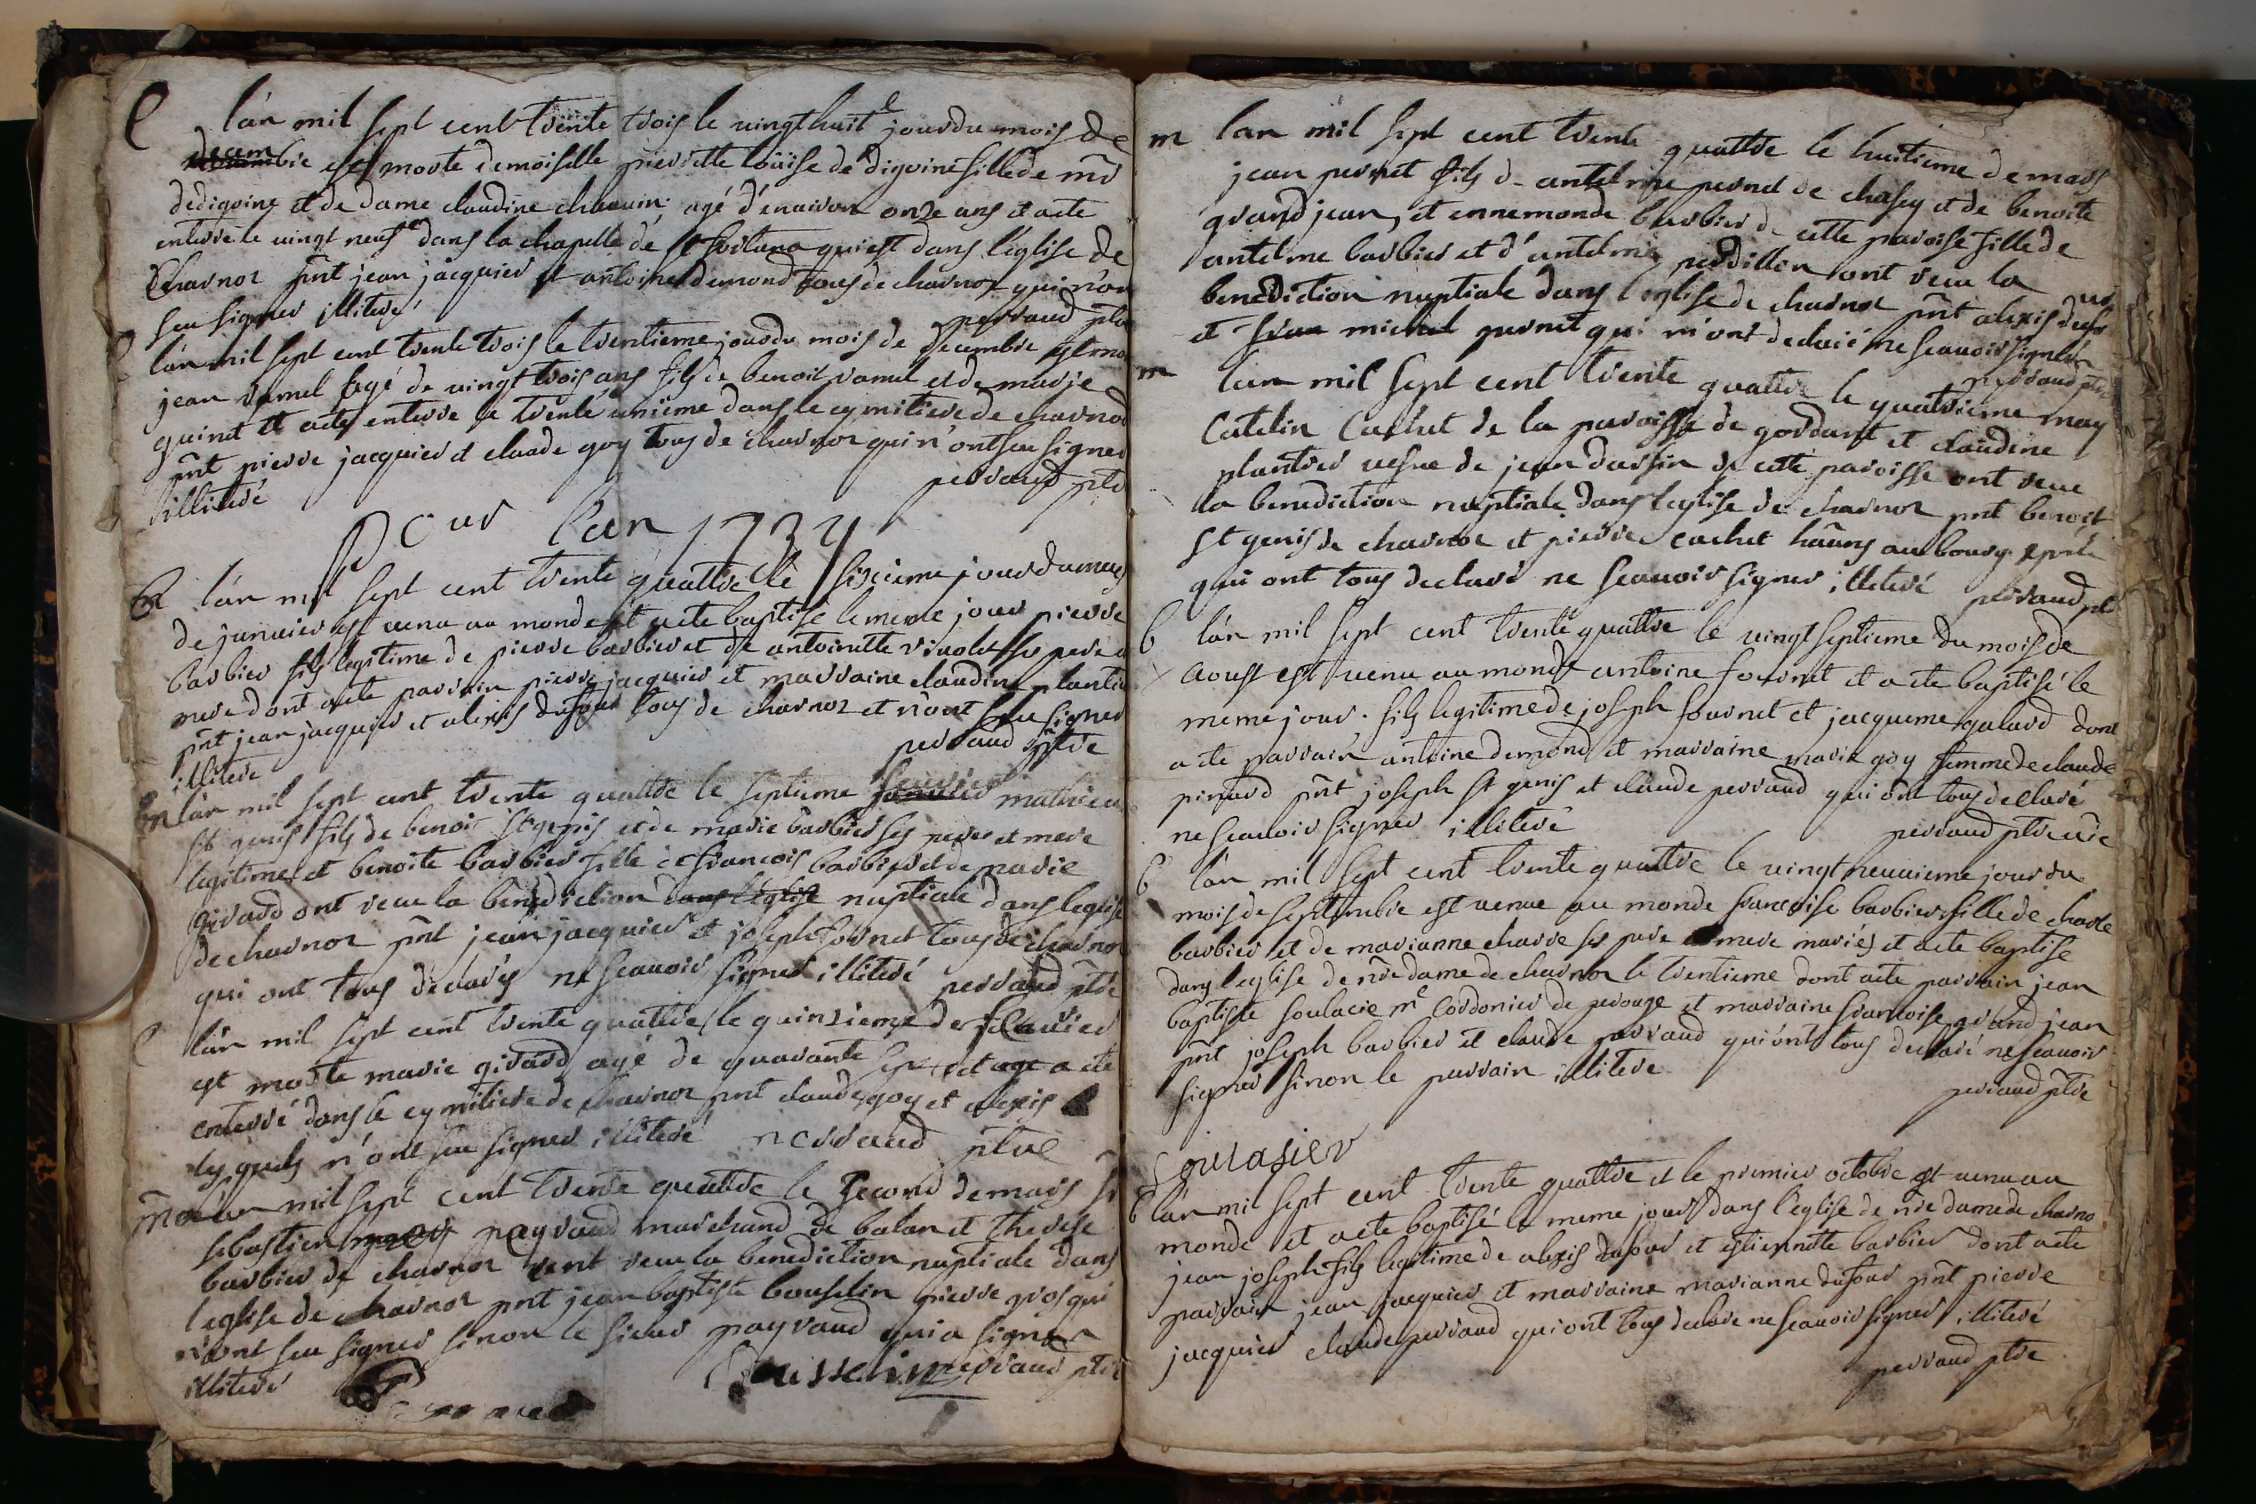 e lan mil sept cent trente trois le vingt huit e jour du mois de
decembre est morte demoiselle pierrette loüise de digoine fille de mr
dedigoine et de dame claudine chavuin agé d'enuiron onze ans et a ete
enterré le vingt neuf dans la chapelle de qui est dans l'eglise de
Charnoz pnt jean jacquier et antoine demond tous de charnoz qui n'on
seu signer illiteré perraud ptre
lan mil sept cent trente trois le trentieme jour du mois de decembre est mor
jean ramel agé de vingt trois ans fils de benoit ramel et de marie
quinet et a ete enterre le trente unieme dans le cymitiere de charnoz
pnt pierre jacquier et claude goy tous de charnoz qui n'ont seu signer
illiteré perraud ptre
Pour l'an 1734
B lan mil sept cent trente quattre le sixieme jour du mois
de januier est venu au monde et a ete baptisé le meme jour pierre
barbier fils legitime de pierre barbier et de antoinette violet ses pere et
mere dont a ete parrain pierre jacquier et marraine claudine plantie
pnt jean jacquier et alexis dufour tous de charnoz et n'ont seu signer
illiteré perraud ptre
m lan mil sept cent trente quattre le septieme feurier mathieu
st genis fils de benoit st genis et de marie barbier ses pere et mere
legitime et benoite barbier fille de francois barbier et de marie
girard ont receu la benediction dans l'eglise nuptiale dans leglise
de charnoz pnt jean jacquier et joseph fornet tous de charnoz
qui ont tous declarés ne scauoir signer illiteré perraud ptre
lan mil sept cent trente quattre le quinzieme de feurier
est morte marie girard agé de quarante sept et a ete
enterré dans le cymitiere de charnoz pnt claude goy et alexis
lesquels n'ont seu signer illiteré perraud ptre
m lan mil sept cent trente quattre le second de mars sr
sebastien payraud marchand de balan et therese
barbier de charnoz ont receu la benediction nuptiale dans
l'eglise de charnoz pnt jean baptiste bousselin pierre gros qui
n'ont seu signer sinon le sieur payraud qui a signer
illiteré Bousselin perraud ptre
m lan mil sept cent trente quattre le huitieme de mars
jean pernet fils d- antelme pernet de chasey et de benoite
grand jean, et ennemonde barbier de cette paroisse fille de
antelme barbier et d'antelmie perdillon ont receu la
benediction nuptiale dans leglise de charnoz pnt alexis dufour
et michel pernet qui m'ont declaré ne scauoir signer
perraud ptre
m lan mil sept cent trente quattre le quatrieme may
Catelin Cachet de la paroisse de gordant et claudine
plantier uefue de jean dursin de cette paroisse ont receu
la benediction nuptiale dans leglise de charnoz pnt benoit
st genis de charnoz et pierre cachet
qui ont tous declaré ne scauoir signer illiteré perraud ptre
b lan mil sept cent trente quattre le vingt septieme du mois de
aoust est venu au monde antoine fournet et a ete baptisé le
meme jour. fils legitime de joseph fournet et jacqueme galard dont
a ete parrain antoine demond et marraine marie goy femme de claude
pinard pnt joseph st genis et claude perraud qui ont tous declaré
ne scauoir signer illiteré perraud ptre curé
b lan mil sept cent trente quattre le vingt neuuieme jour du
mois de septembre est venue au monde francoise barbier fille de charle
barbier et de marianne charre ses pere et mere mariés et a ete baptise
dans leglise de nre dame de charnoz le trentieme dont a ete parrain jean
baptiste soulacie me cordonier de perouge et marraine francoise grand jean
pnt joseph barbier et claude perraud qui ont tous declaré ne scauoir
signer sinon le parrain illiteré
perraud ptre
b lan mil sept cent trente quattre et le premier octobre est uenu au
monde et a ete baptisé le meme jour dans l'eglise de nre dame de charno
jean joseph fils legitime de alexis dufour et estiennette barbier dont a ete
parrain jean jacquier et marraine marianne dufour pnt pierre
jacquier claude perraud qui ont tous declaré ne scauoir signer illiteré
perraud ptre